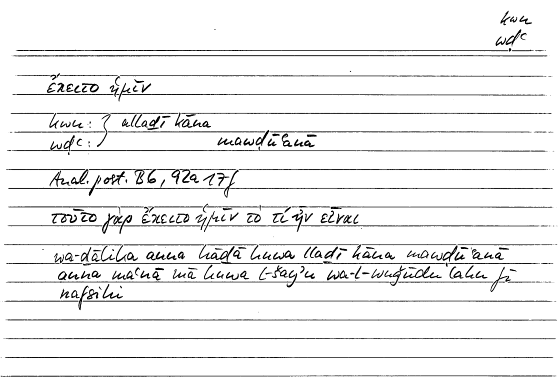 kwn
wḍʿ
ἔκειτο ἡμῖν
kwn: } allaḏī kāna
wḍʿ: } mawḍūʿanā
Anal. post. B6, 92a 17f
τοῦτο γὰρ ἔκειτο ἡμῖν τὸ τί ἦν εἶναι
wa-ḏālika anna hāḏā huwa llaḏī kāna mawḍūʿanā
anna maʿnā mā huwa l-šayʾu wa-l-wuǧūdu lahu fī
nafsihi